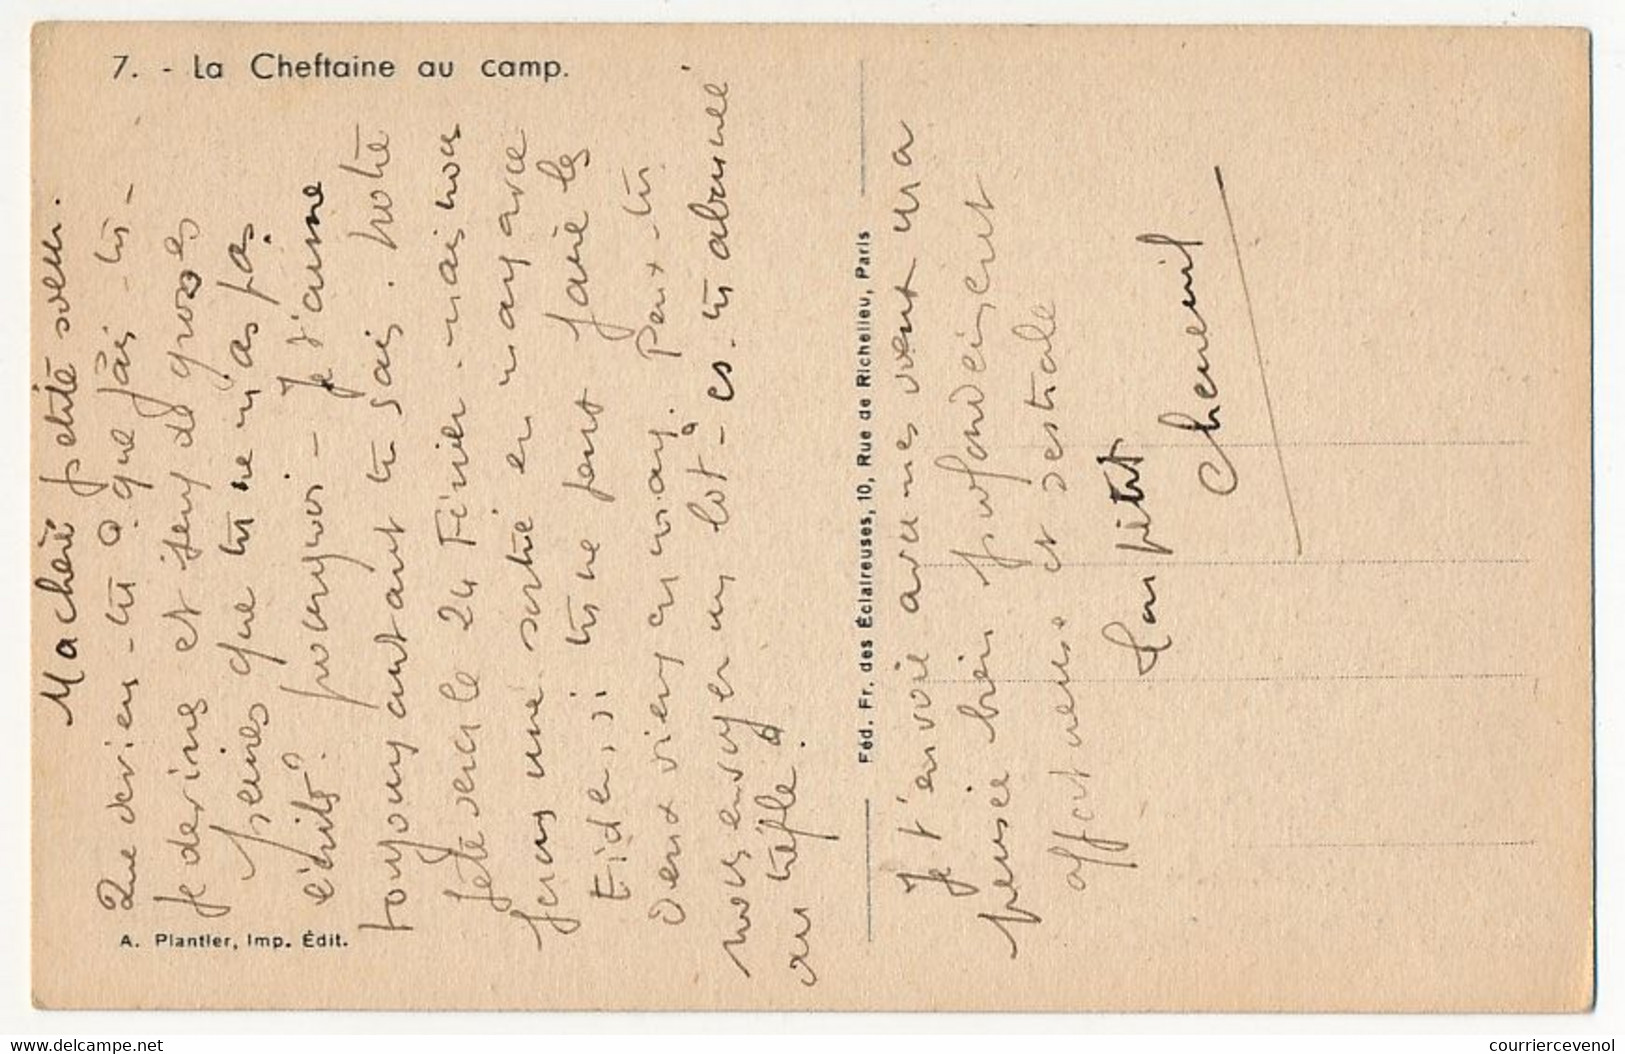 7. - La Cheftaine au camp.
Ma chère petite soeur.
Que devien-tu ? que fais-tu -
Je devine et sens de grosses
peines que tu ne m'as pas
écrit? pourquoi - Je t'aime
toujours autant tu sais. notre
fête sera le 24 Février. mais nous
ferons une sortie en mars avec
tu ne peut faire les
Deux viens en mars. Peux-tu
nous envoyer un lot - es-tu abonnée
au trèfle?
A. Plantier, Imp. Édit.
Féd. Fr. des Éclaireuses, 10, Rue de Richelieu, Paris
Je t'envoie avec mes voeux ma
pensée bien profondément
affectueuse et
Ton petit
Chenenil
courriercevenol
www.delcampe.net